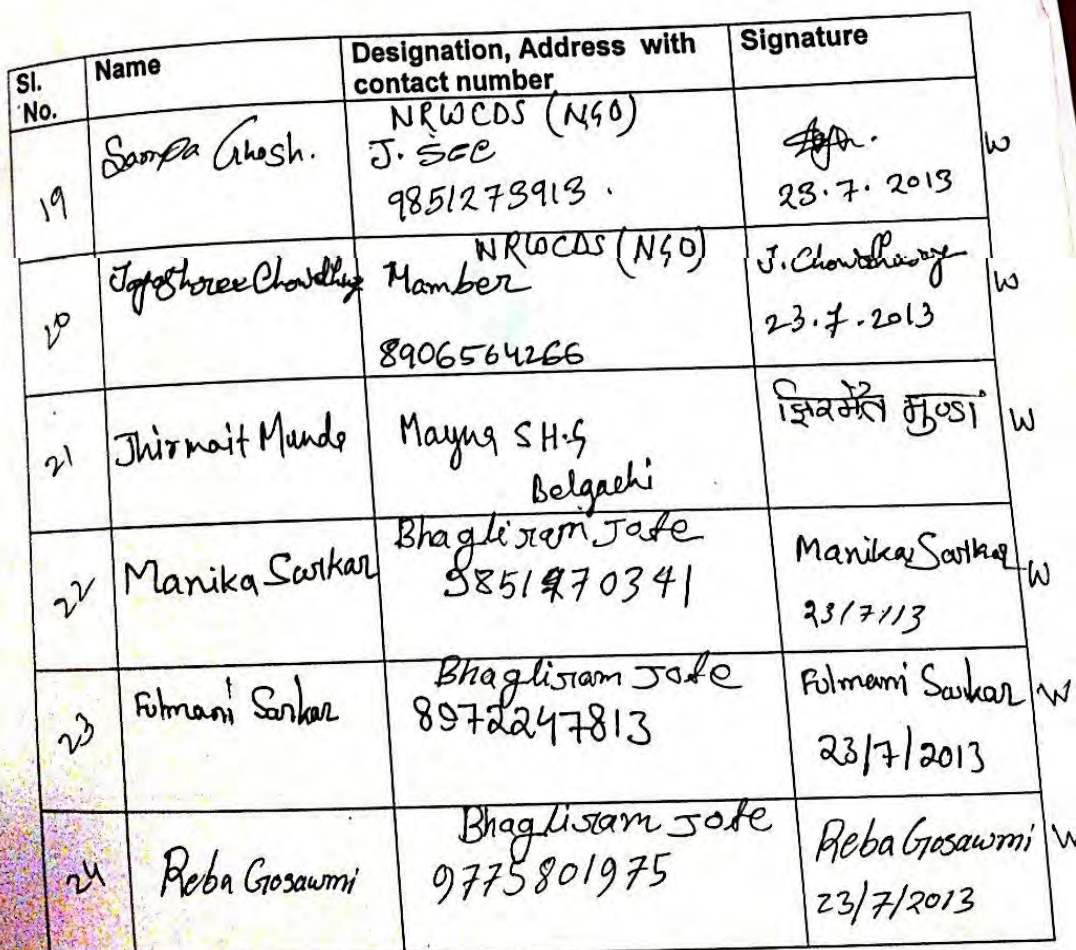 Sl. No.
Name
Designation, Address with contact number
Signature
19
Sampa Ghosh.
NRWCDS (NGO)
J. SEC
9851273913.
23.7.2013
W
20
Chowdhury
NRWCDS (NGO)
Mamber
8906564266
J. Chowdhury
23.7.2013
W
21
Jhirmait Munde
Mayna S H.G
Belgachi
झिरमैत मुण्डा
W
22
Manika Sarkar
Bhagliram Jote
Manika Sarkar
23/7/13
W
23
Fulmani Sarkar
Bhagliram Jote
8972247813
Fulmani Sarkar
23/7/2013
W
24
Reba Gosawmi
Bhagliram Jote
9775801975
Reba Gosawmi
23/7/2013
W